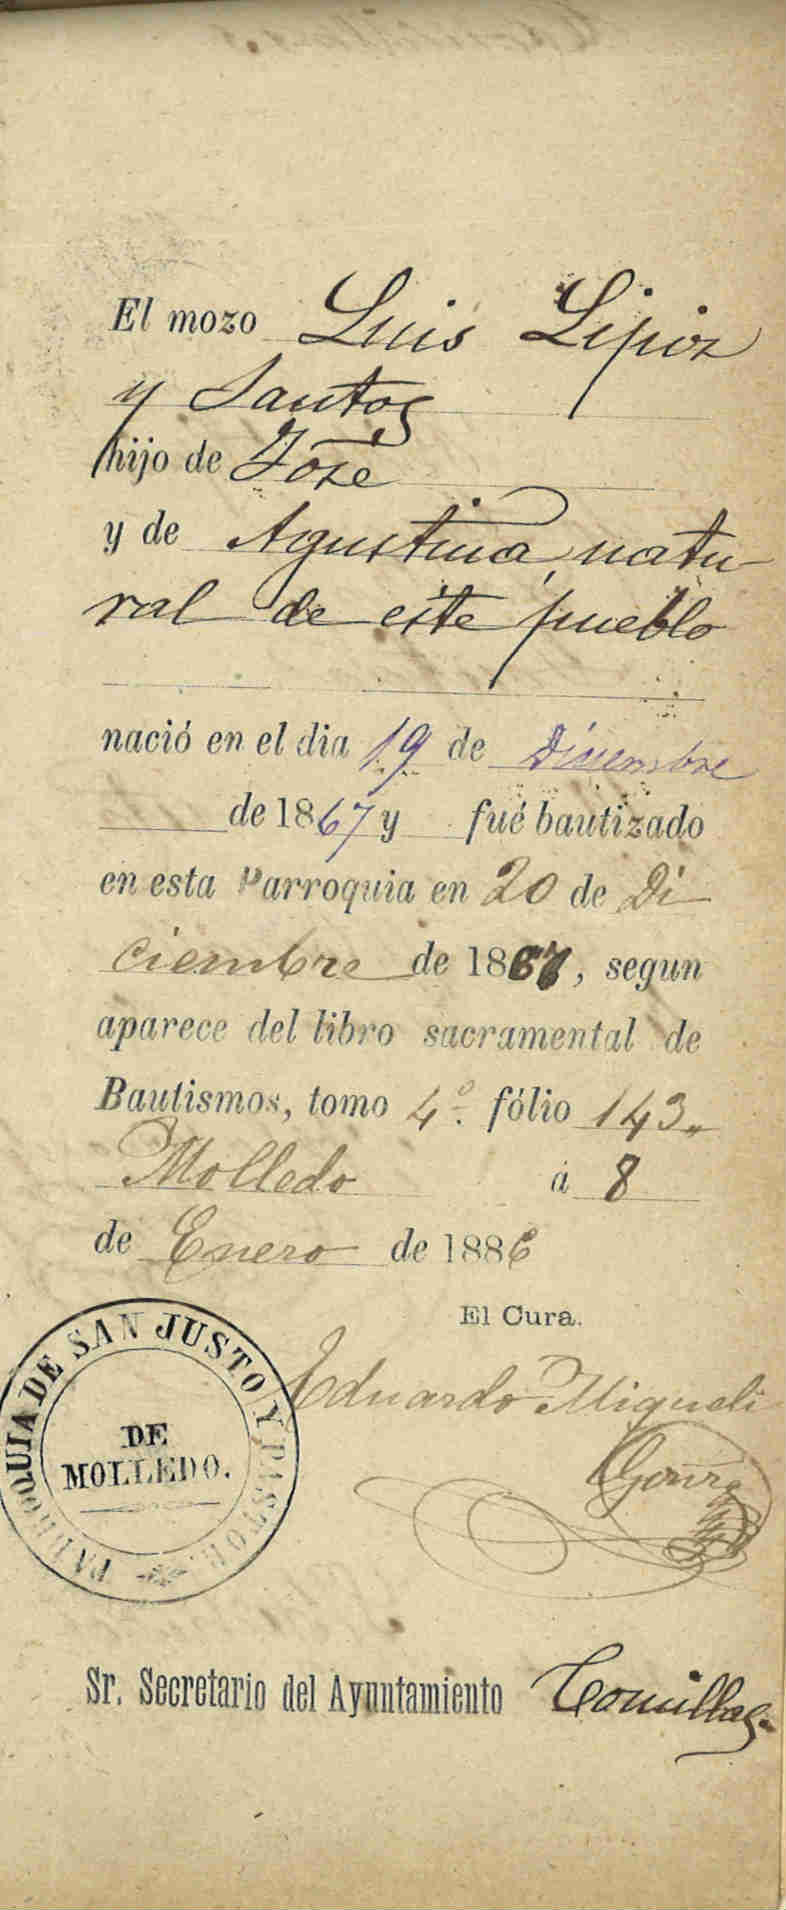 El mozo Luis Lipiz
y Santos
hijo de José
y de Agustina, natu-
ral de este pueblo
nació en el dia 19 de Diciembre
de 1867 y fué bautizado
en esta Parroquia en 20 de Di
ciembre de 1867, segun
aparece del libro sacramental de
Bautismos, tomo 4º. fólio 143.,
Molledo á 8
de Enero de 1886
El Cura.
Eduardo Migueli
PARROQUIA DE SAN JUSTO Y PASTOR.
DE
MOLLEDO.
Sr. Secretario del Ayuntamiento Comillas.